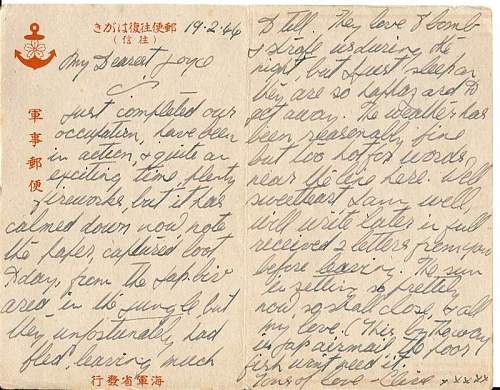 郵便往復はがき
(往信)
軍事郵便
海軍省發行
19.2.46
My Dearest Joyce
Just completed our
occupation, have been
in action, & quite an
exciting time, plenty
fireworks, but it has
calmed down now, note
the paper, captured loot
day, from the Jap. biv
in the jungle, but
they unfortunately had
fled, leaving much
still. They love to bomb
& strafe us during the
night, but I just sleep on
they are so to
get away. The weather has
been reasonably fine
but too hot for words
near the line here. Well
sweetheart I am well,
will write later in full
received 2 letters from you
before leaving. The sun
is setting so prettily
now, so shall close, & all
my love. (This by the way
is Jap airmail, the poor
fish won't need it.
Tons of love xxxxx